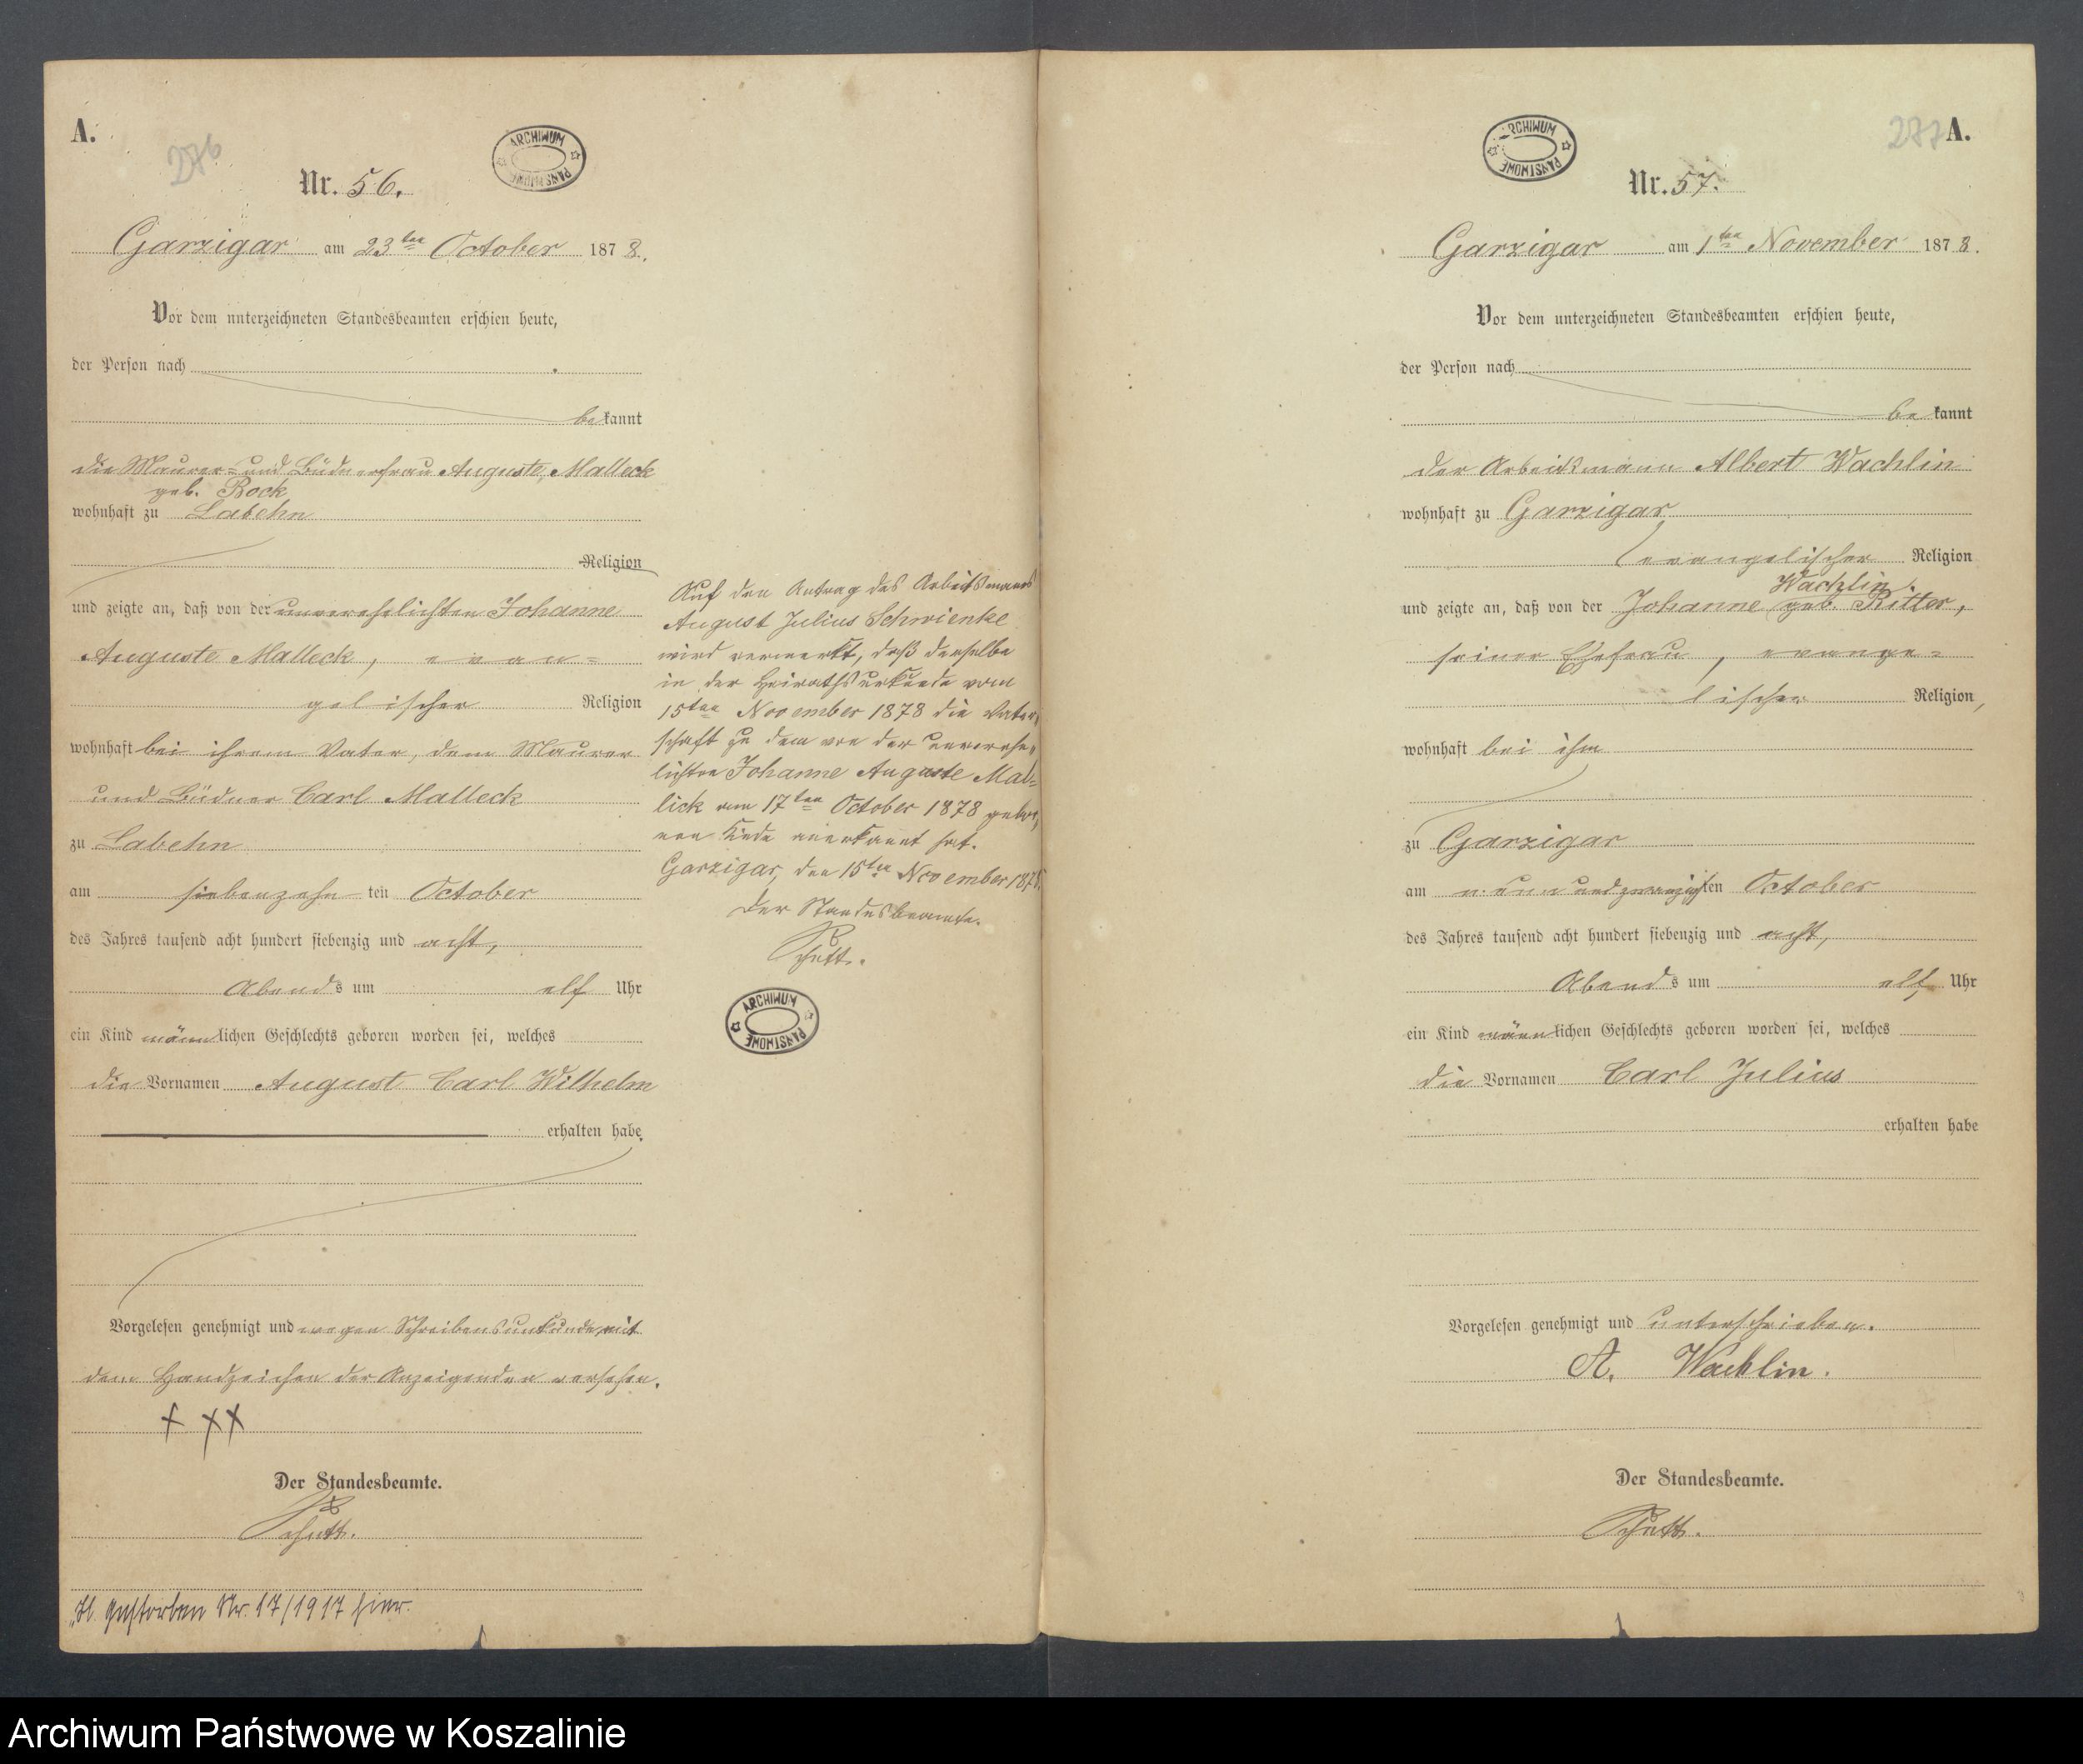 A.
276
ARCHIWUM PAŃSTWOWE
Nr. 56.
Garzigar am 23ten October 1878.
Vor dem unterzeichneten Standesbeamten erschien heute,
der Person nach
bekannt
die Maurer- und Büdnerfrau Auguste, Malleck
geb. Bock
wohnhaft zu Labehn
Religion
und zeigte an, daß von der unverehelichten Johanne
Auguste Malleck, evan=
gelischer Religion
wohnhaft bei ihrem Vater, dem Maurer
und Büdner Carl Malleck
zu Labehn
am siebenzehnten October
des Jahres tausend acht hundert siebenzig und acht,
Abends um elf Uhr
ein Kind männlichen Geschlechts geboren worden sei, welches
die Vornamen August Carl Wilhelm
erhalten habe.
Vorgelesen genehmigt und wegen Schreibensunkunde mit
dem Handzeichen der Anzeigenden versehen.
+ ++
Der Standesbeamte.
Schütt.
gestorben Nr. 17/1917 hier.
Auf den Antrag des Arbeitsmanns
August Julius Schwienke
wird vermerkt, daß derselbe
in der Heirathsurkunde vom
15ten November 1878 die Vater=
schaft zu dem von der unverehe=
lichten Johanne Auguste Mal=
lick am 17ten October 1878 gebore=
nen Kinde anerkannt hat.
Garzigar, den 15ten November 1878.
Der Standesbeamte.
Schütt.
ARCHIWUM PAŃSTWOWE
ARCHIWUM PAŃSTWOWE
277 A.
Nr. 57.
Garzigar am 1ten November 1878.
Vor dem unterzeichneten Standesbeamten erschien heute,
der Person nach
bekannt
der Arbeitsmann Albert Wachlin
wohnhaft zu Garzigar
evangelischer Religion
Wachlin
und zeigte an, daß von der Johanne geb. Ritter,
seiner Ehefrau, evange=
lischer Religion,
wohnhaft bei ihm
zu Garzigar
am neunundzwanzigsten October
des Jahres tausend acht hundert siebenzig und acht,
Abends um elf Uhr
ein Kind männlichen Geschlechts geboren worden sei, welches
die Vornamen Carl Julius
erhalten habe
Vorgelesen genehmigt und unterschrieben.
A. Wachlin.
Der Standesbeamte.
Schütt.
Archiwum Państwowe w Koszalinie